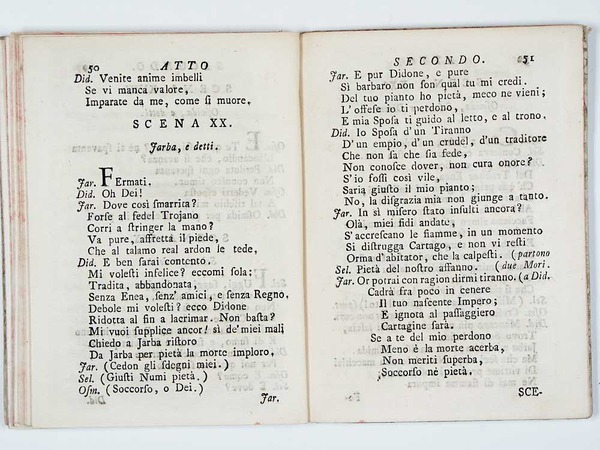 50 ATTO
Did. Venite anime imbelli
Se vi manca valore,
Imparate da me, come ſi muore.
SCENA XX.
Jarba, e detti.
Jar. Fermati.
Did. Oh Dei!
Jar. Dove così ſmarrita?
Forſe al fedel Trojano
Corri a ſtringer la mano?
Va pure, affretta il piede,
Che al talamo real ardon le tede,
Did. E ben ſarai contento.
Mi voleſti infelice? eccomi ſola:
Tradita, abbandonata,
Senza Enea, ſenz' amici, e ſenza Regno,
Debole mi voleſti? ecco Didone
Ridotta al fin a lacrimar. Non baſta?
Mi vuoi ſupplice ancor! sì de' miei mali
Chiedo a Jarba riſtoro
Da Jarba per pietà la morte imploro.
Jar. (Cedon gli ſdegni miei.)
Sel. (Giuſti Numi pietà.)
Oſm. (Soccorſo, o Dei.)
Jar.
SECONDO. 51
Jar. E pur Didone, e pure
Sì barbaro non ſon qual tu mi credi.
Del tuo pianto ho pietà, meco ne vieni;
L' offeſe io ti perdono,
E mia Spoſa ti guido al letto, e al trono.
Did. Io Spoſa d'un Tiranno
D' un empio, d' un crudel, d'un traditore
Che non ſa che ſia fede,
Non conoſce dover, non cura onore?
S'io foſſi così vile,
Saria giuſto il mio pianto;
No, la diſgrazia mia non giunge a tanto.
Jar. In sì miſero ſtato inſulti ancora?
Olà, miei fidi andate,
S'accreſcano le fiamme, in un momento
Si diſtrugga Cartago, e non vi reſti
Orma d'abitator, che la calpeſti. (partono
Sel. Pietà del noſtro affanno. (due Mori.
Jar. Or potrai con ragion dirmi tiranno. (a Did.
Cadrà fra poco in cenere
Il tuo naſcente Impero;
E ignota al paſſaggiero
Cartagine ſarà.
Se a te del mio perdono
Meno è la morte acerba,
Non meriti ſuperba,
Soccorſo nè pietà.
SCE-